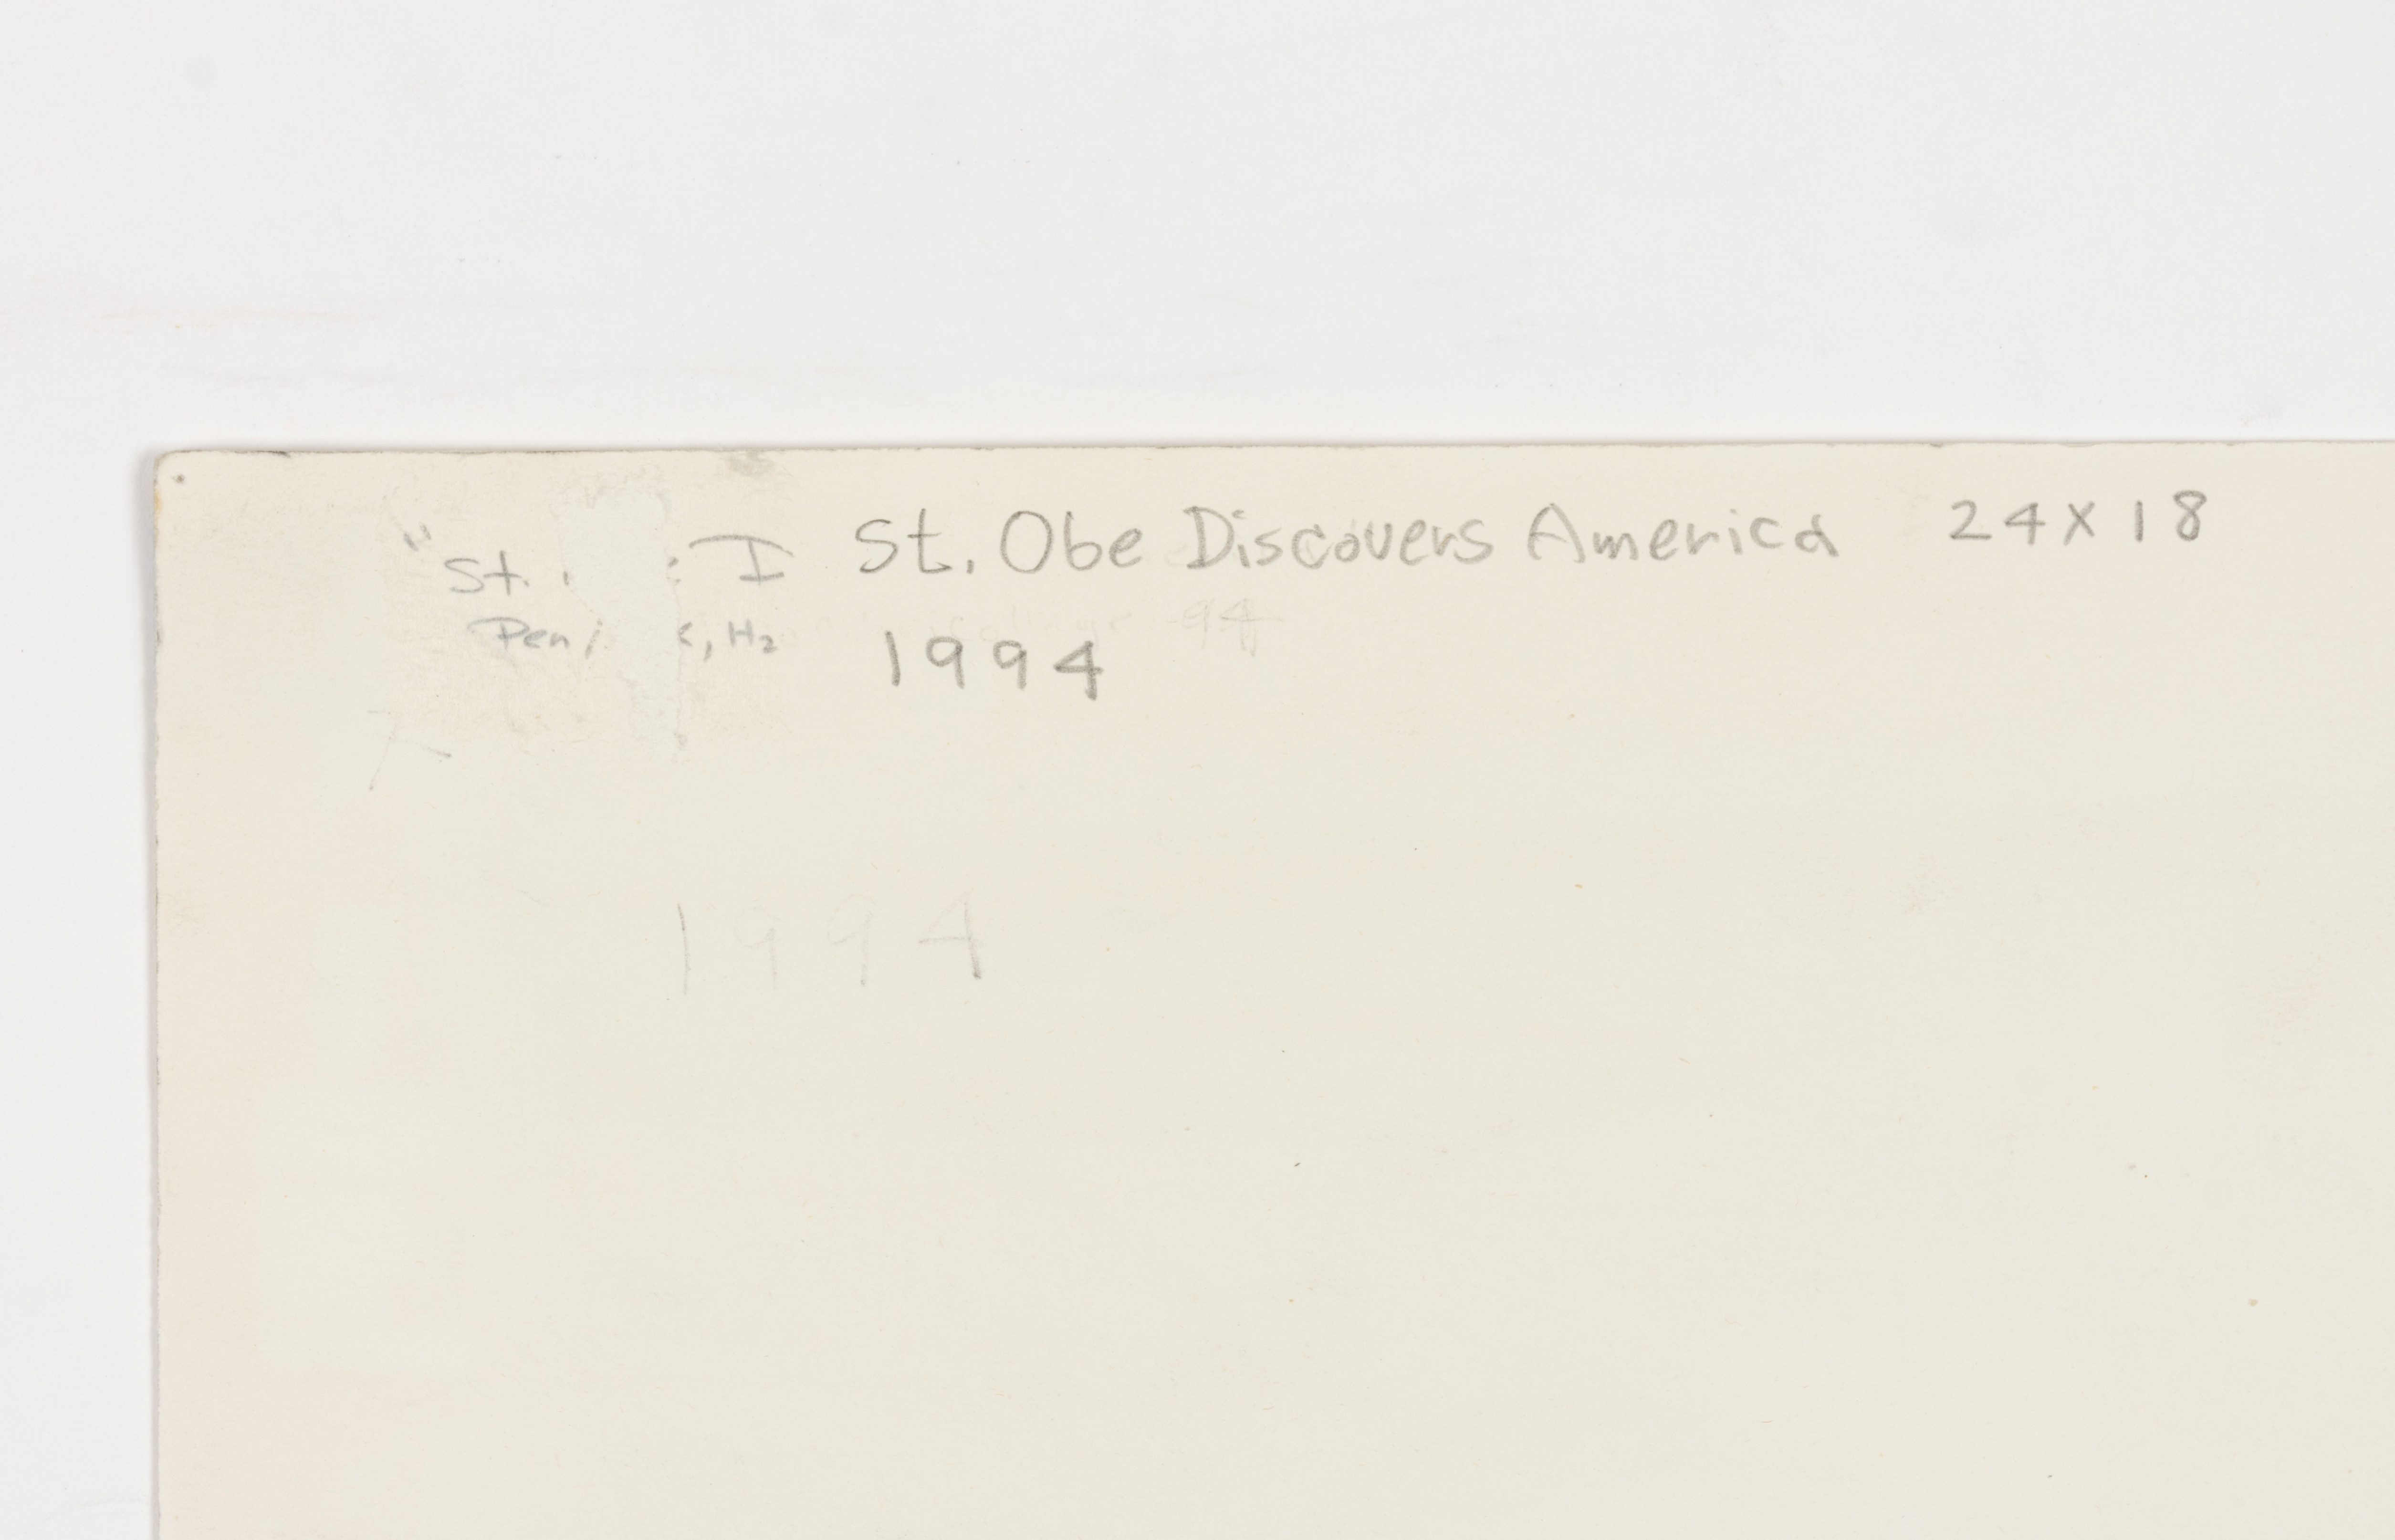 "St. I St. Obe Discovers America 24 X 18
Pen , H2 1994
94
1994